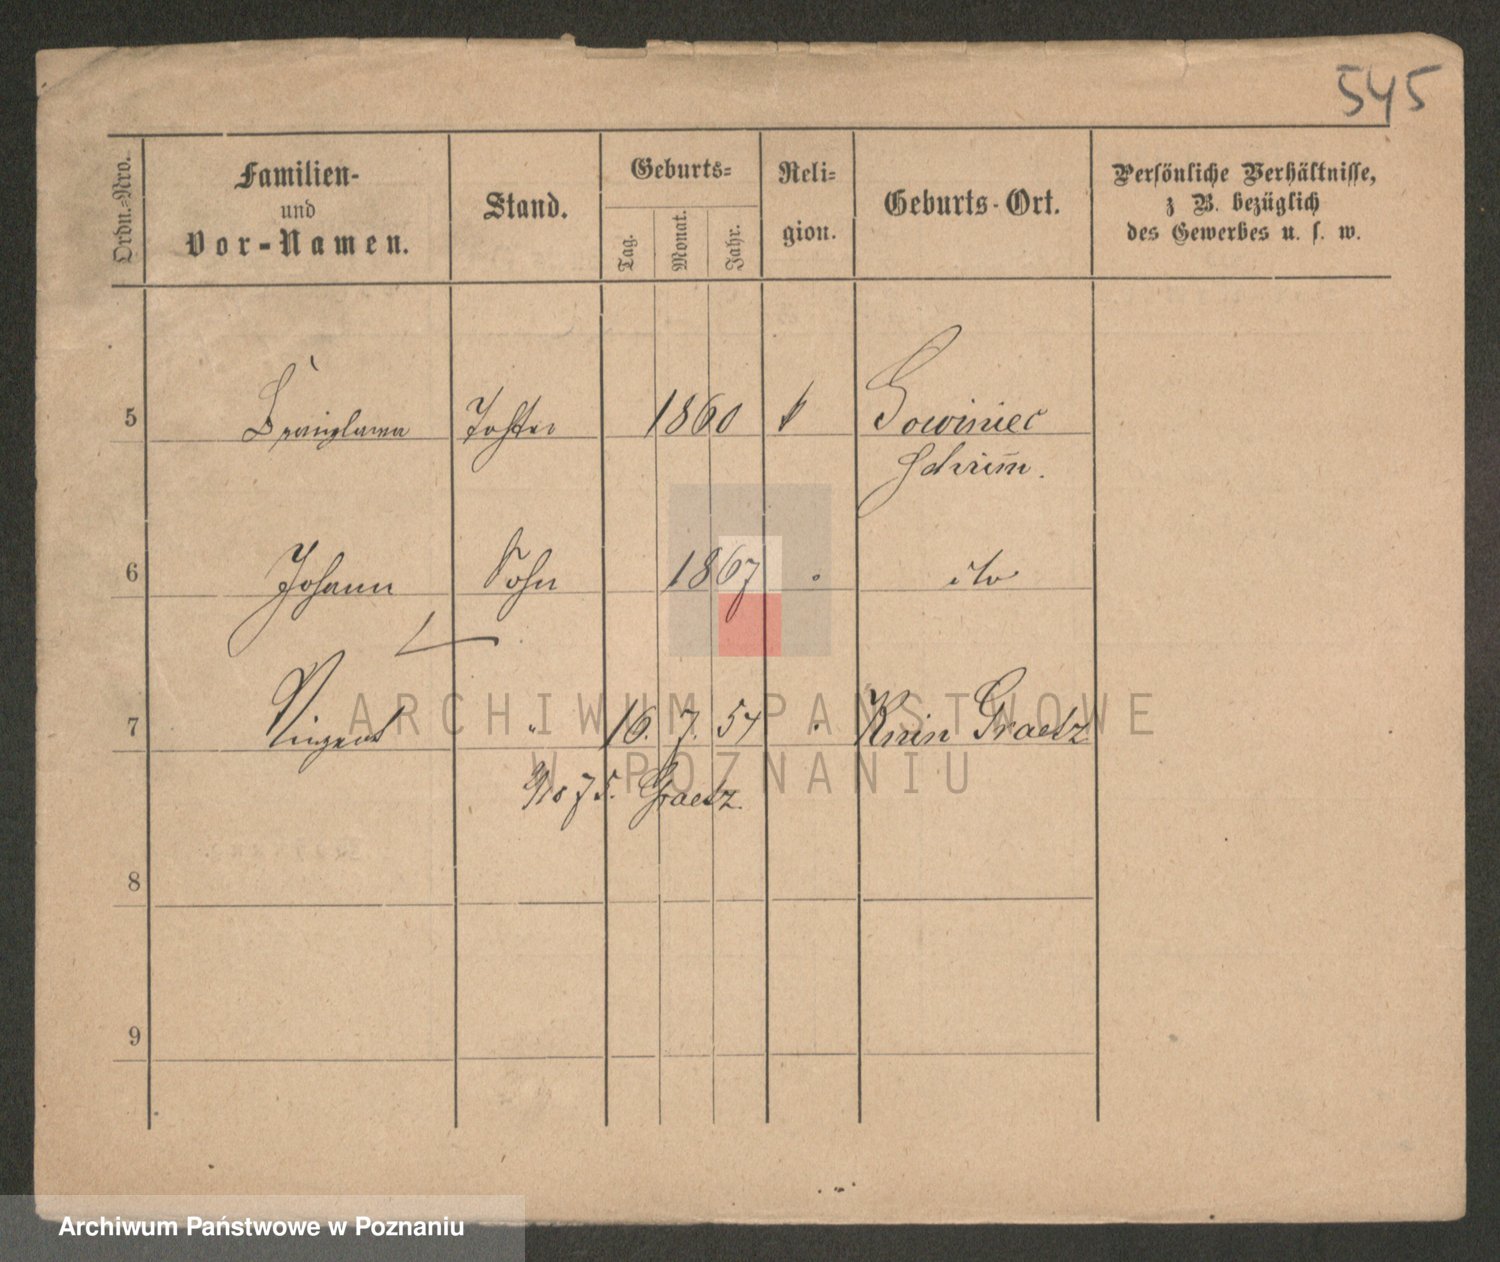 545
Ordn.-Nro.
Familien-
und
Vor-Namen.
Stand.
Geburts-
Tag.
Monat.
Jahr.
Reli-
gion.
Geburts-Ort.
Persönliche Verhältnisse,
z B. bezüglich
des Gewerbes u. s. w.
5 Tochter 1860 k Gowiniec
Schrim̅.
6 Johann Sohn 1867 " dto
7 Vinzent " 16. 7. 54 " Graetz
75. Graetz.
8
9
ARCHIWUM PAŃSTWOWE
W POZNANIU
Archiwum Państwowe w Poznaniu